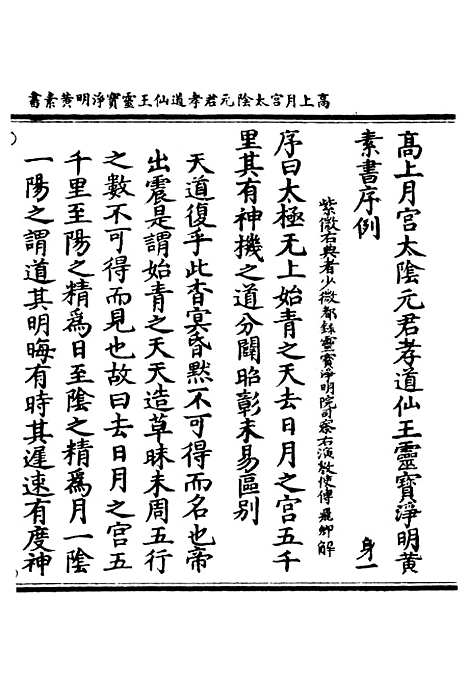 高上月宮太陰元君孝道仙王靈寶淨明黃素書
高上月宮太陰元君孝道仙王靈寶淨明黃
素書序例
身一
紫微右典者少微都錄靈寶淨明院司察右演教使傅飛卿解
序曰太極无上始青之天去日月之宮五千
里其有神機之道分闢昭彰未易區別
天道復乎此杳㝠昏默不可得而名也帝
出震是謂始青之天天造草昧未周五行
之數不可得而見也故曰去日月之宮五
千里至陽之精爲日至陰之精爲月一陰
一陽之謂道其明晦有時其遲速有度神